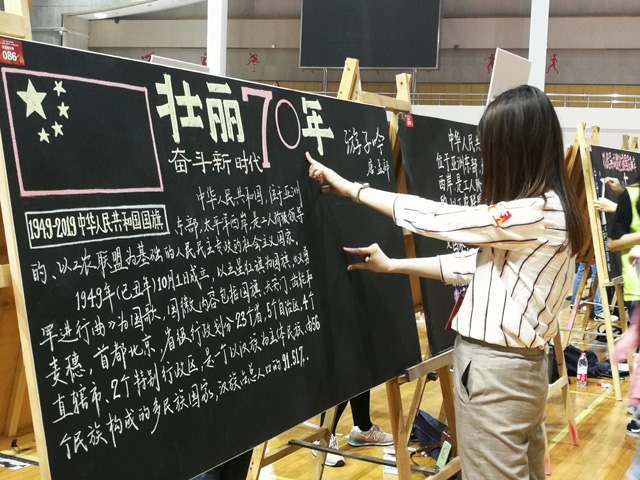 086
壮丽70年
奋斗新时代
游子吟
1949-2019中华人民共和国国旗
中华人民共和国, 位于亚洲
东部, 太平洋西岸, 是工人阶级领导
的、以工农联盟为基础的人民民主专政的社会主义国家,
1949年(己丑年)10月1日成立, 以五星红旗为国旗, 义勇
军进行曲为国歌, 国徽内容包括国旗、天安门、齿轮和
麦穗, 首都北京, 省级行政划分23个省, 5个自治区, 4个
直辖市, 2个特别行政区, 是一个以汉族为主体民族, 由56
个民族构成的多民族国家, 汉族占总人口的91.51%.